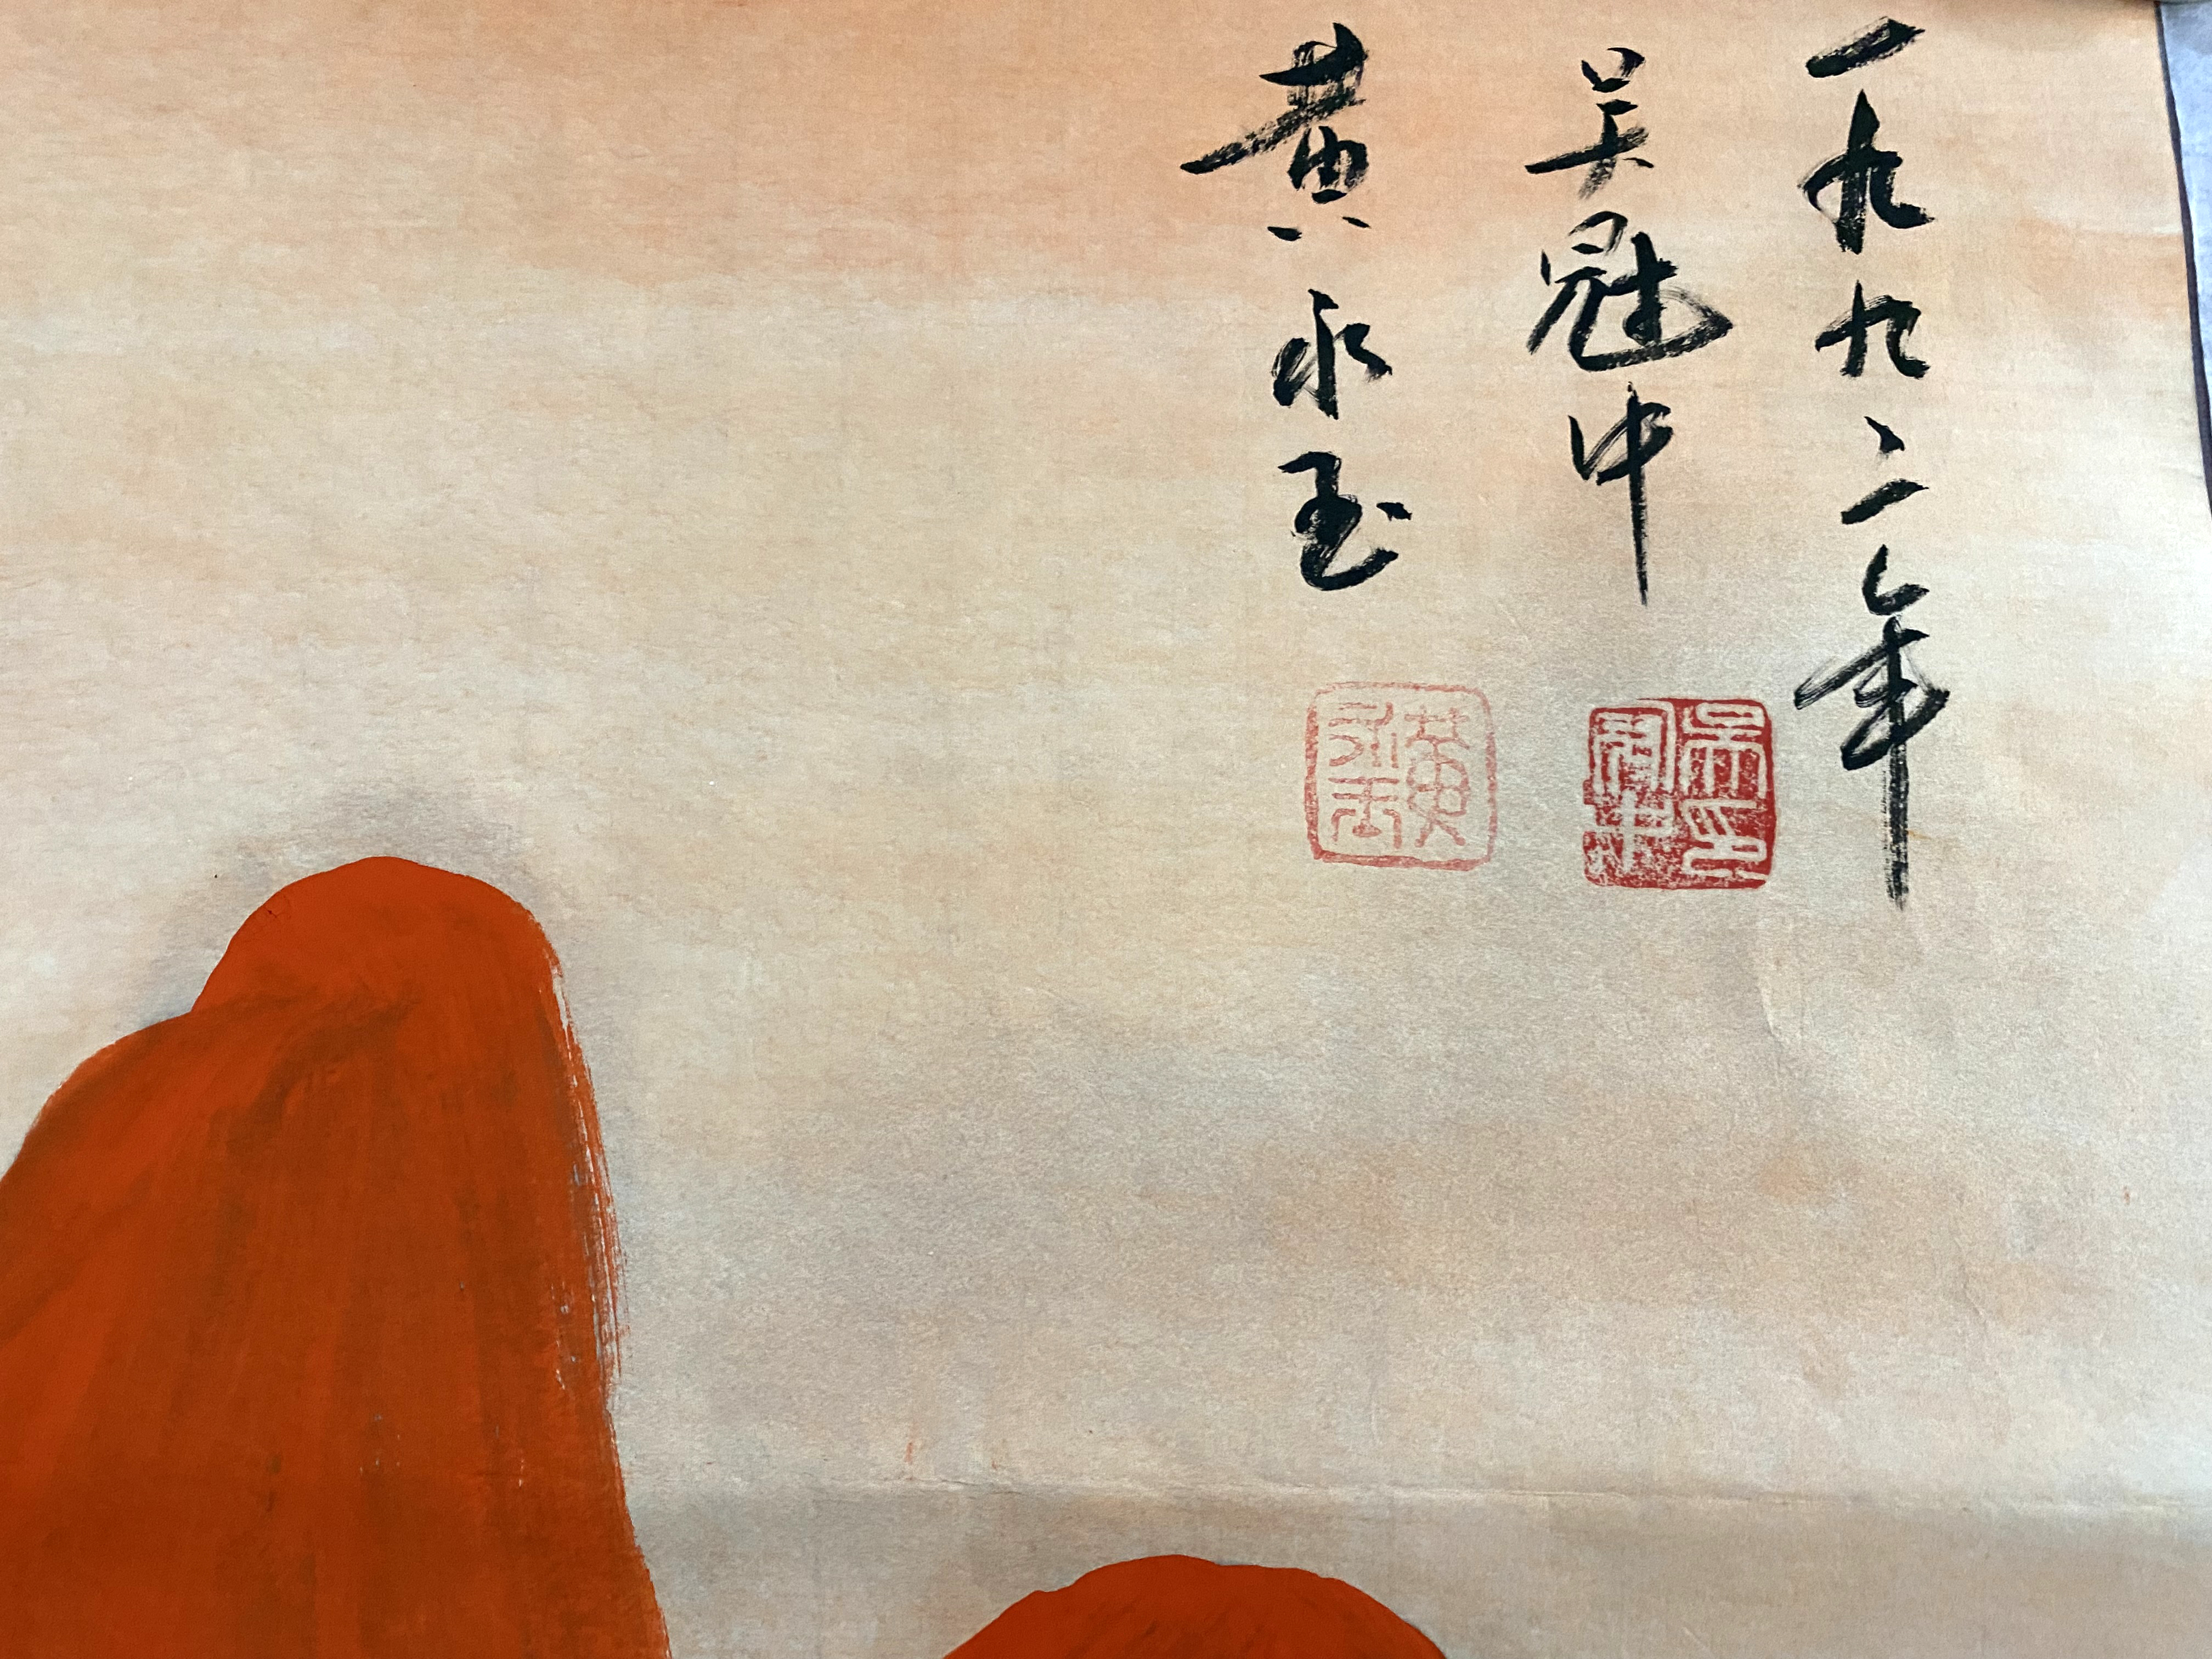 一九九二年
吴冠中
黄永玉
吴冠中印
黄永玉